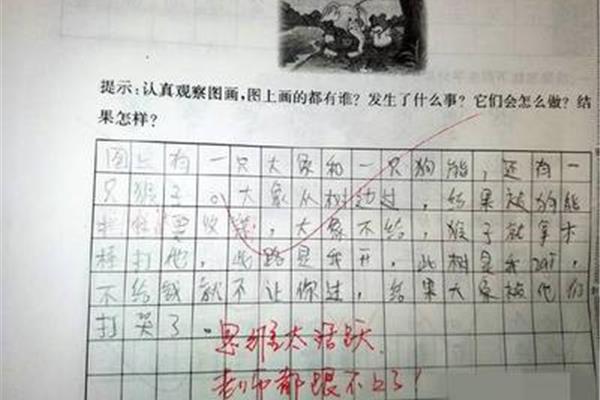 提示:认真观察图画,图上画的都有谁?发生了什么事?它们会怎么做?结
果怎样?
图上有一只大象和一只狗能,还有一
只猴子。大象从树边过,结果被狗能
拦住要收钱,大象不给,猴子就拿木
棒打他,此路是我开,此树是我栽,
不给钱就不让你过,结果大象被他们
打哭了.
思维太活跃
老师都跟不上了!